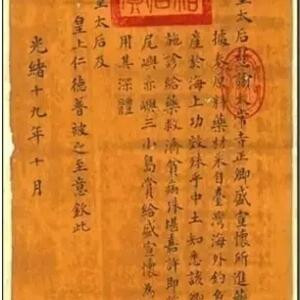 皇太后慈諭太常寺正卿盛宣懷所進藥
據奏原料藥材來自臺灣海外釣魚
產於海上功效殊乎中土知悉該
施診給藥救濟貧病殊堪嘉許即
尾嶼赤嶼三小島賞給盛宣懷為
用其深體
皇太后及
皇上仁德普被之至意欽此
光緒十九年十月